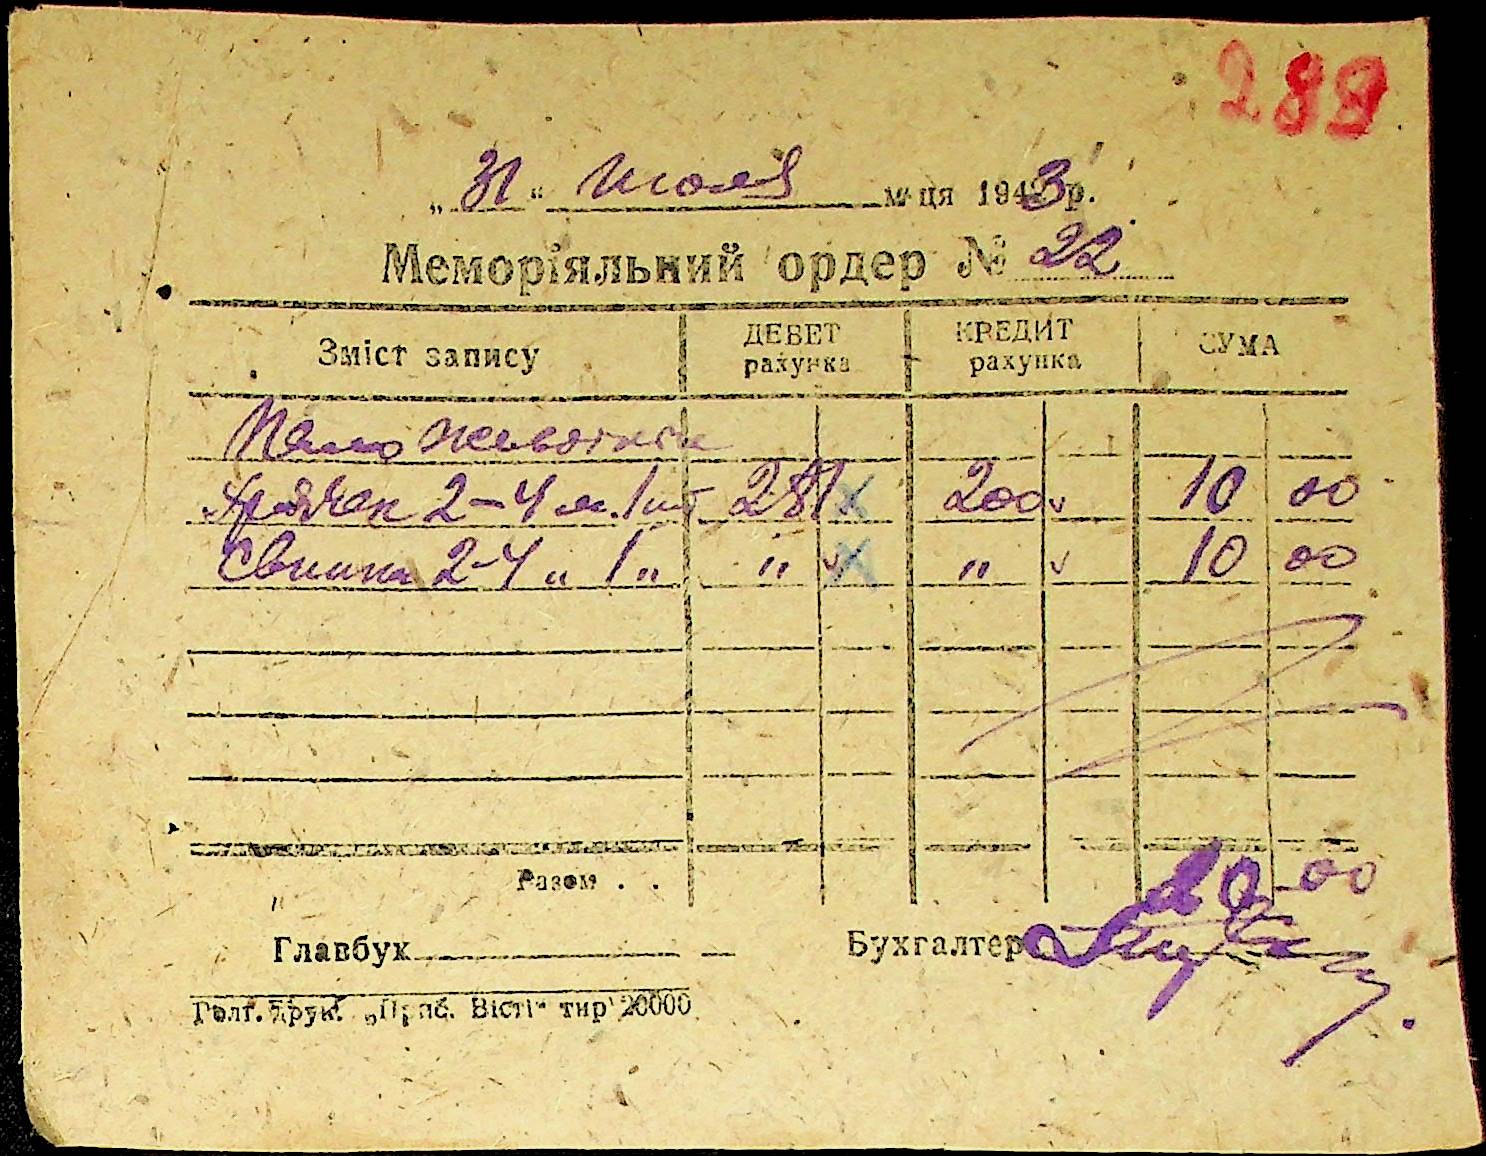 299
„31“ Июля м-ця 1943 р.
Меморіяльний ордер № 22
Зміст запису ДЕБЕТ рахунка КРЕДИТ рахунка СУМА
Пало
2-4 м. 1 шт 281 200 10 00
2-4 „ 1 „ „ „ 10 00
Разом . .
20 00
Главбук Бухгалтер
Голг. друк. „Приб. Вісті“ тир 20000